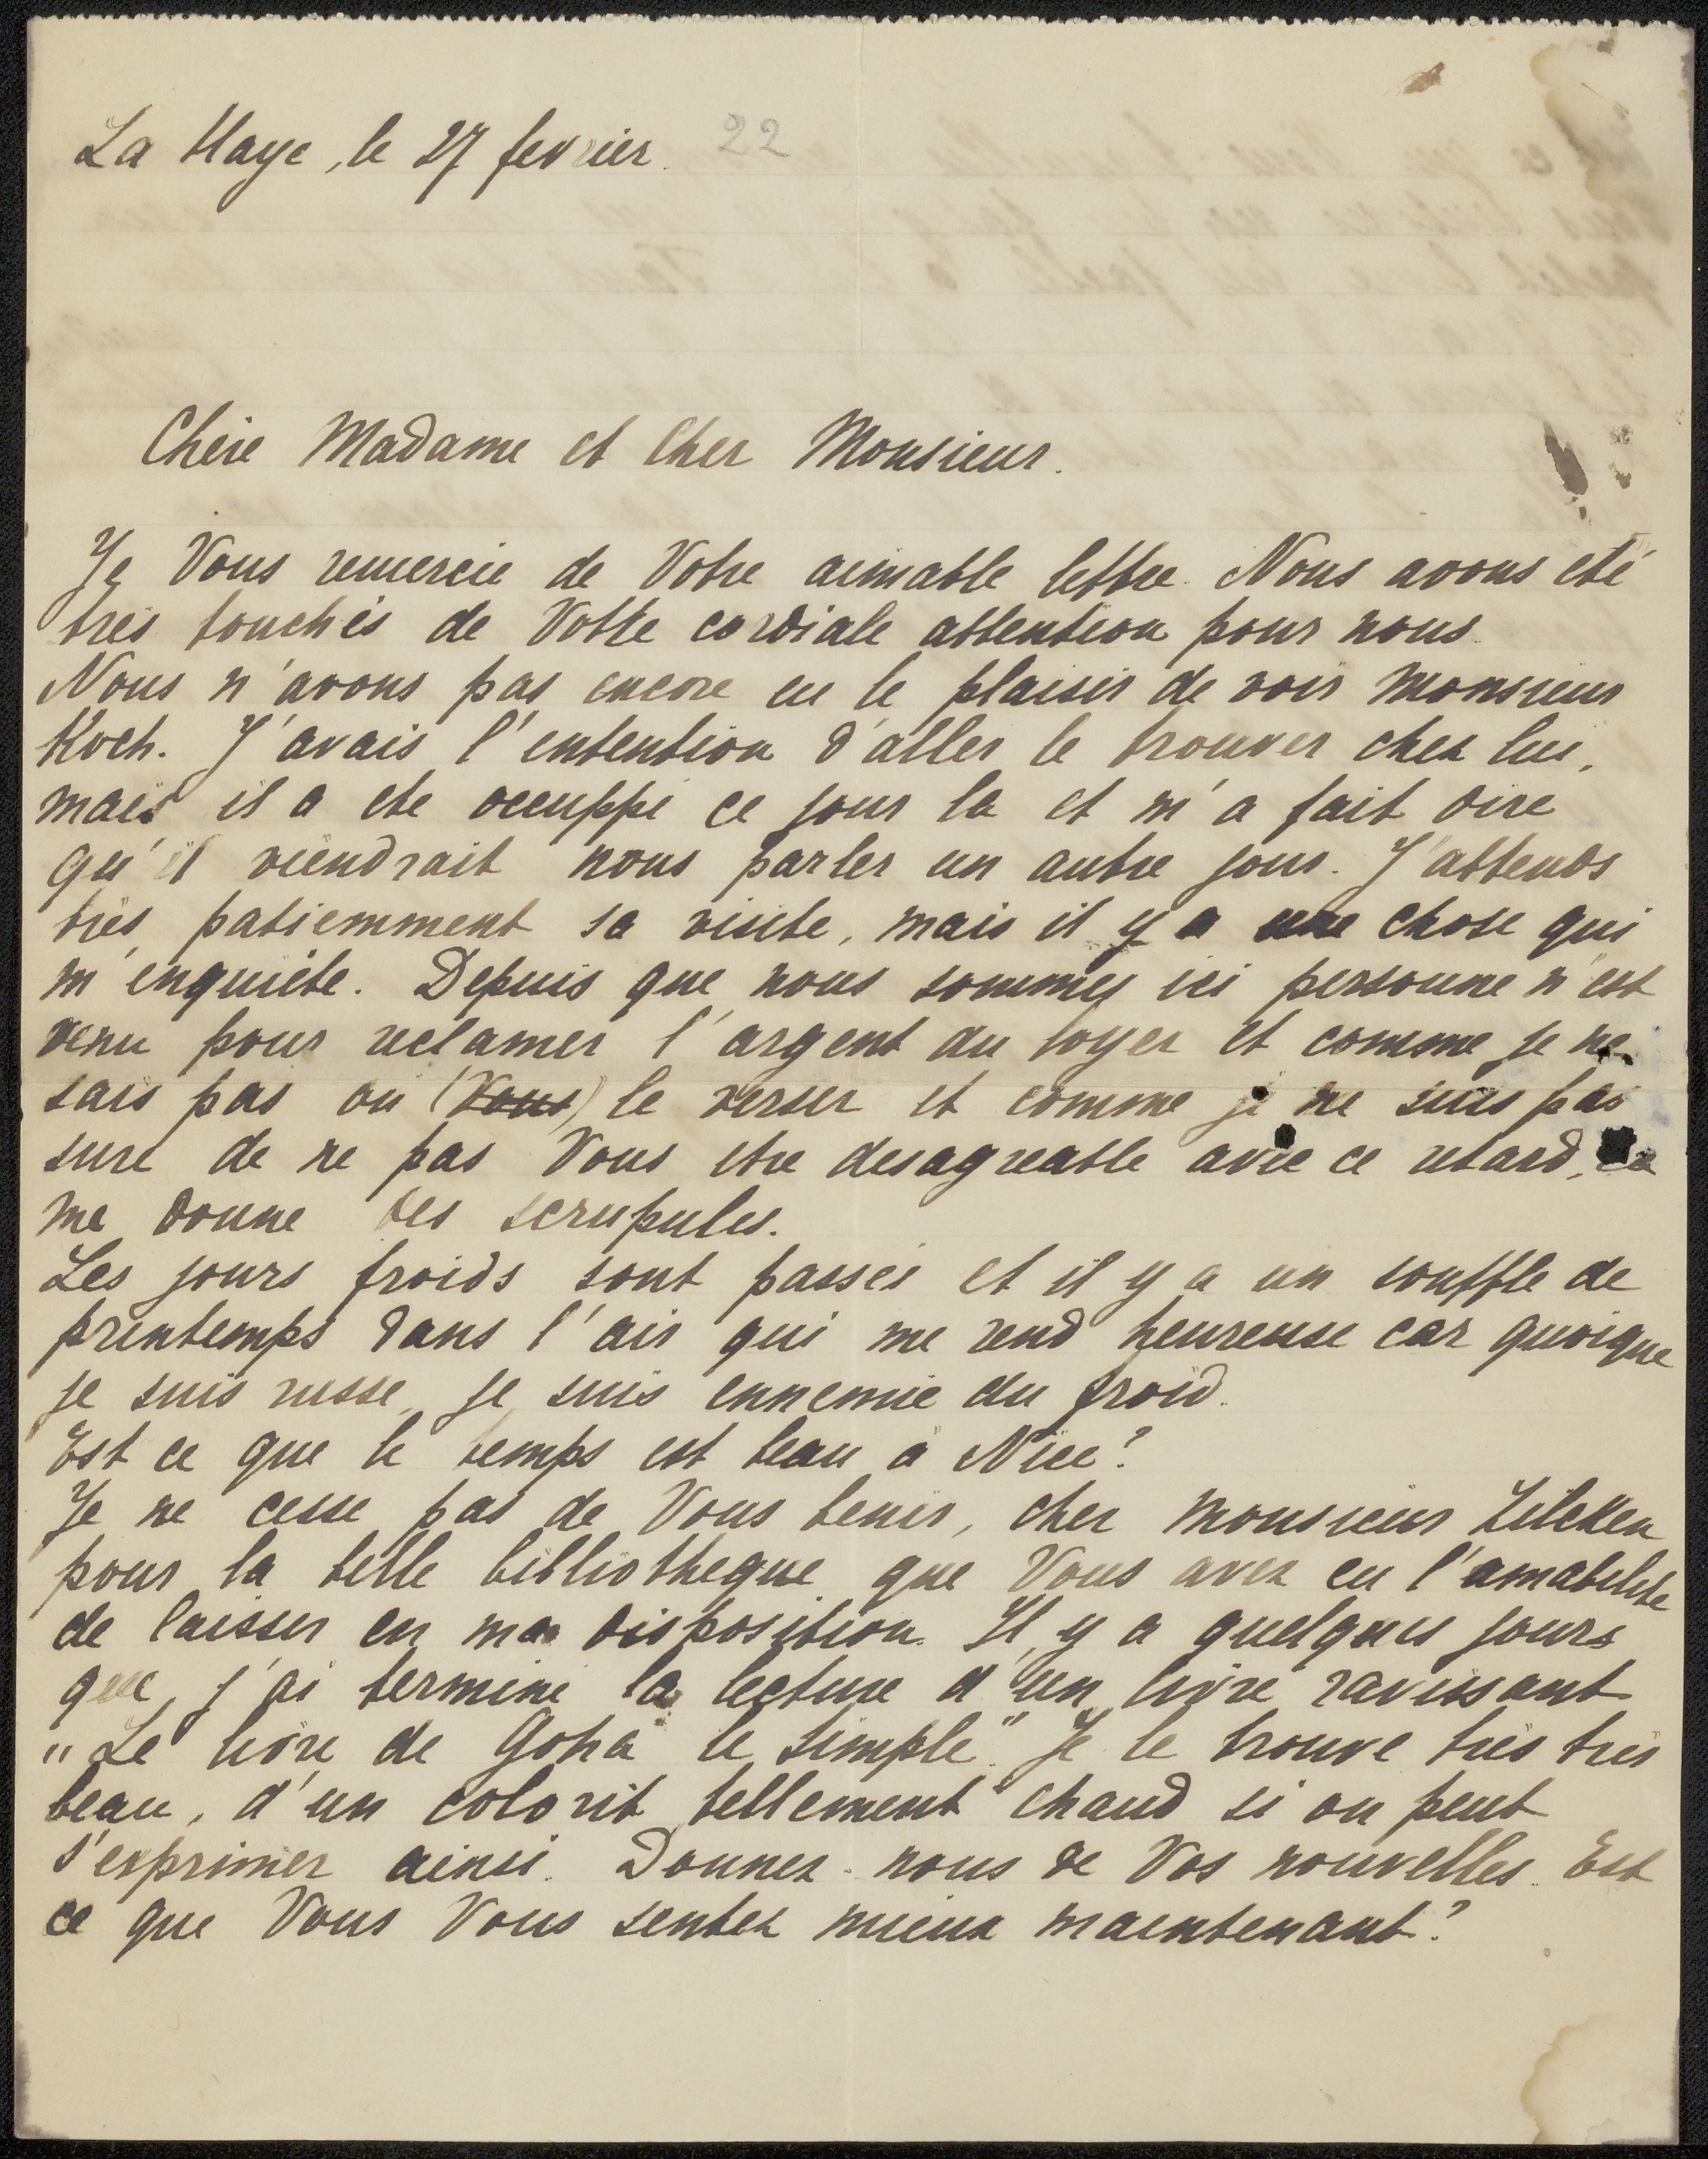 La Haye, le 27 fevrier. 22
Chère Madame et Cher Monsieur.
Je Vous remercie de Votre aimable lettre. Nous avons été
très touchés de Votre cordiale attention pour nous.
Nous n'avons pas encore eu le plaisir de voir Monsieur
Koch. J'avais l'entention d'aller le trouver chez lui,
mais il a ete occuppé ce jour la et m'a fait dire
qu'il viendrait nous parler un autre jour. J'attends
très patiemment sa visite, mais il y a une chose qui
m'enquiète. Depuis que nous sommes ici personne n'est
venu pour reclamer l'argent du loyer et comme je ne
sais pas ou (Vous) le verser et comme je ne suis pas
sure de ne pas Vous etre desagreable avec ce retard, ca
me donne des scrupules.
Les jours froids sont passés et il y a un souffle de
printemps dans l'air qui me rend heureuse car quoique
je suis russe, je suis ennemie du froid.
Est ce que le temps est beau à Nice?
Je ne cesse pas de Vous benir, cher Monsieur Zilcken
pour la belle bibliotheque que Vous avez eu l'amabilite
de laisser en ma disposition. Il y a quelques jours
que j'ai terminé la lecture d'un livre ravissant
"Le livre de Goha le simple". Je le trouve très très
beau, d'un colorit tellement chaud si on peut
s'exprimer ainsi. Donnez-nous de Vos nouvelles. Est
ce que Vous Vous sentez mieux maintenant?